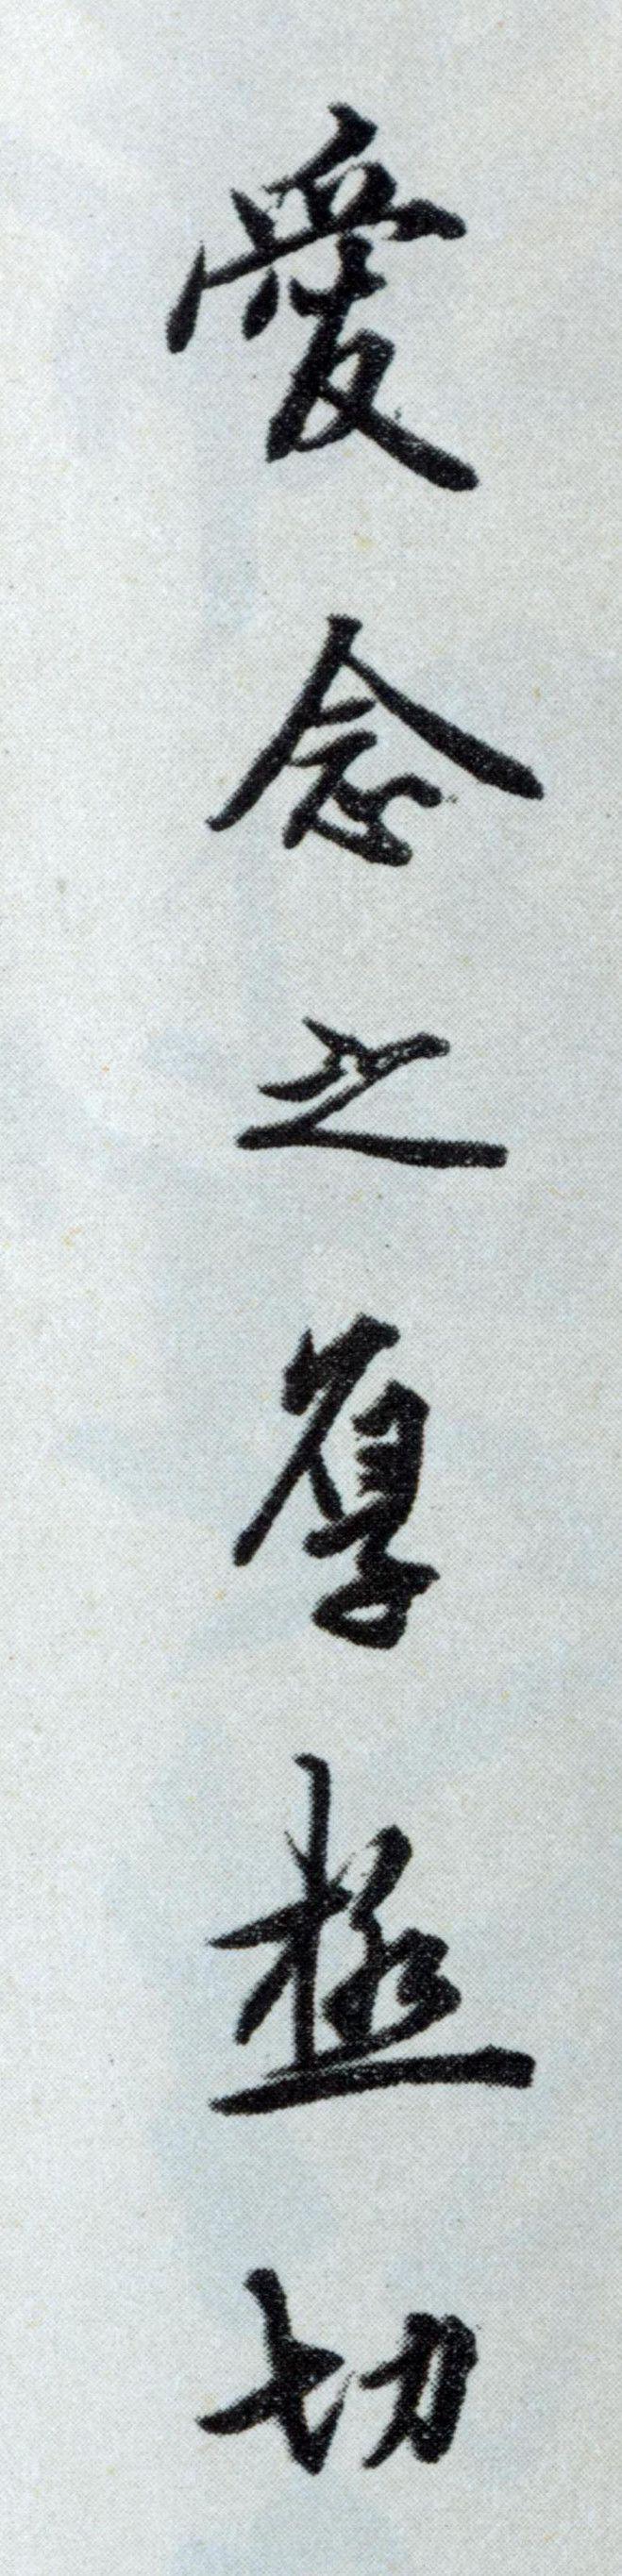 愛念之厚極切